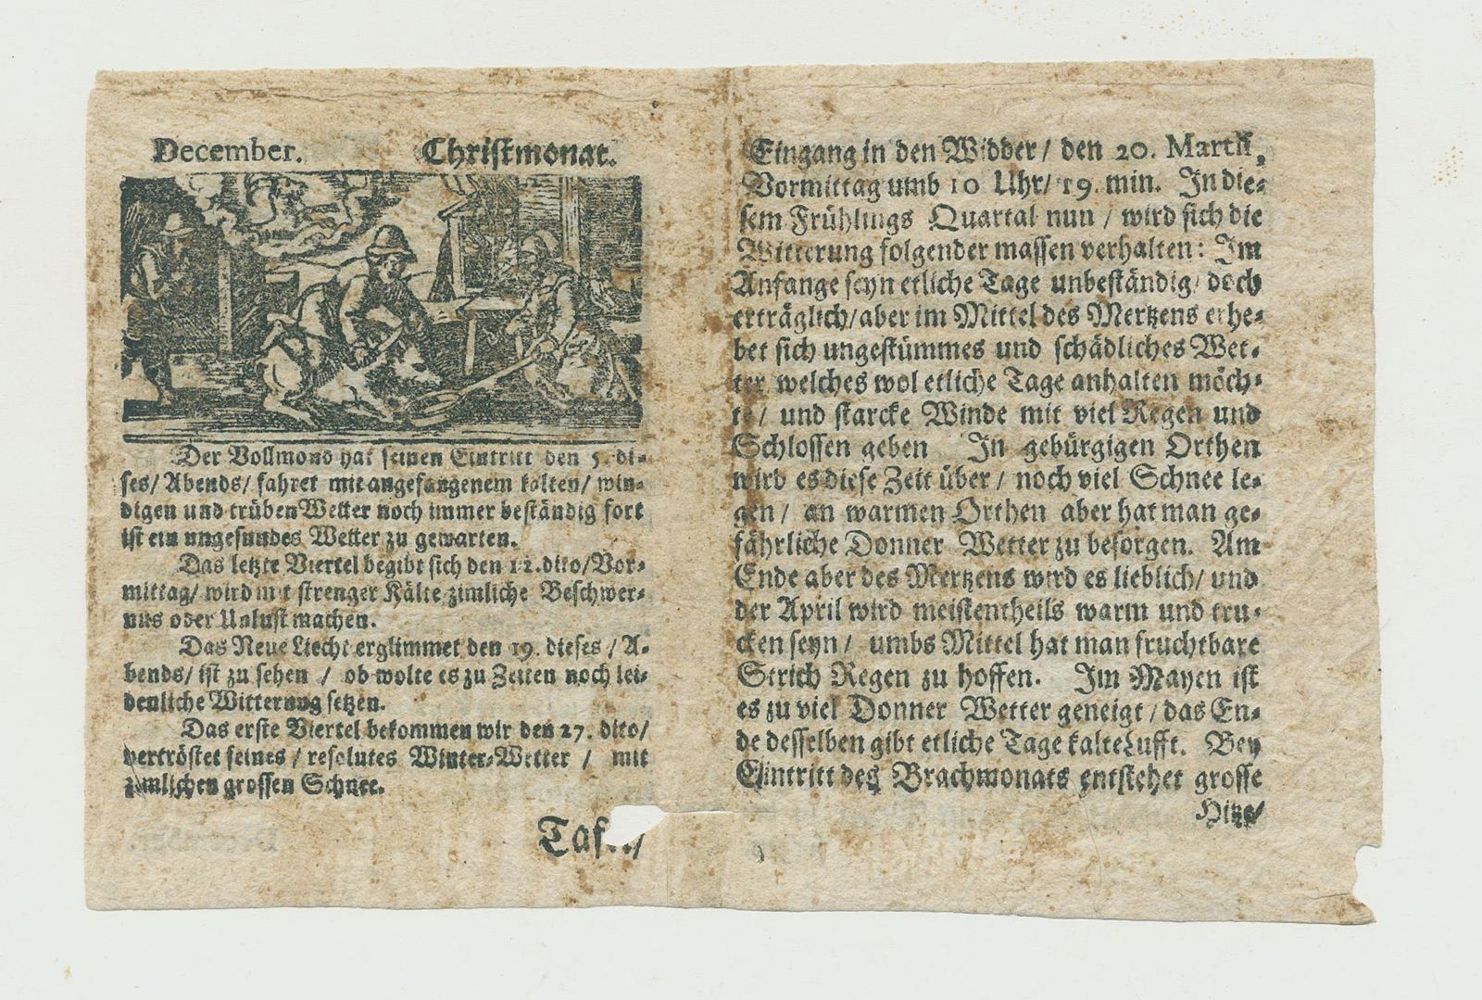 December. Christmonat.
Der Vollmond hat seinen Eintritt den 5. di-
ses/ Abends/ fahret mit angefangenem kalten/ win-
digen und trüben Wetter noch immer beständig fort
ist ein ungesundes Wetter zu gewarten.
Das letzte Viertel begibt sich den 12. dito/ Vor-
mittag/ wird mit strenger Kälte zimliche Beschwer-
nus oder Unlust machen.
Das Neue Liecht erglimmet den 19. dieses / A-
bends/ ist zu sehen / ob wolte es zu Zeiten noch lei-
denliche Witterung setzen.
Das erste Viertel bekommen wir den 27. dito/
vertröstet feines / resolutes Winter-Wetter / mit
zimlichen grossen Schnee.
Eingang in den Widder/ den 20. Martii,
Vormittag umb 10 Uhr/ 19. min. In die-
sem Frühlings Quartal nun / wird sich die
Witterung folgender massen verhalten: Im
Anfange seyn etliche Tage unbeständig/ doch
erträglich/ aber im Mittel des Mertzens erhe-
bet sich ungestümmes und schädliches Wet-
ter welches wol etliche Tage anhalten möch-
te/ und starcke Winde mit viel Regen und
Schlossen geben In gebürgigen Orthen
wird es diese Zeit über / noch viel Schnee le-
gen / an warmen Orthen aber hat man ge-
fährliche Donner Wetter zu besorgen. Am
Ende aber des Mertzens wird es lieblich/ und
der April wird meistentheils warm und tru-
cken seyn / umbs Mittel hat man fruchtbare
Strich Regen zu hoffen. Im Mayen ist
es zu viel Donner Wetter geneigt / das En-
de desselben gibt etliche Tage kalte Lufft. Bey
Eintritt des Brachmonats entstehet grosse
Hitze/